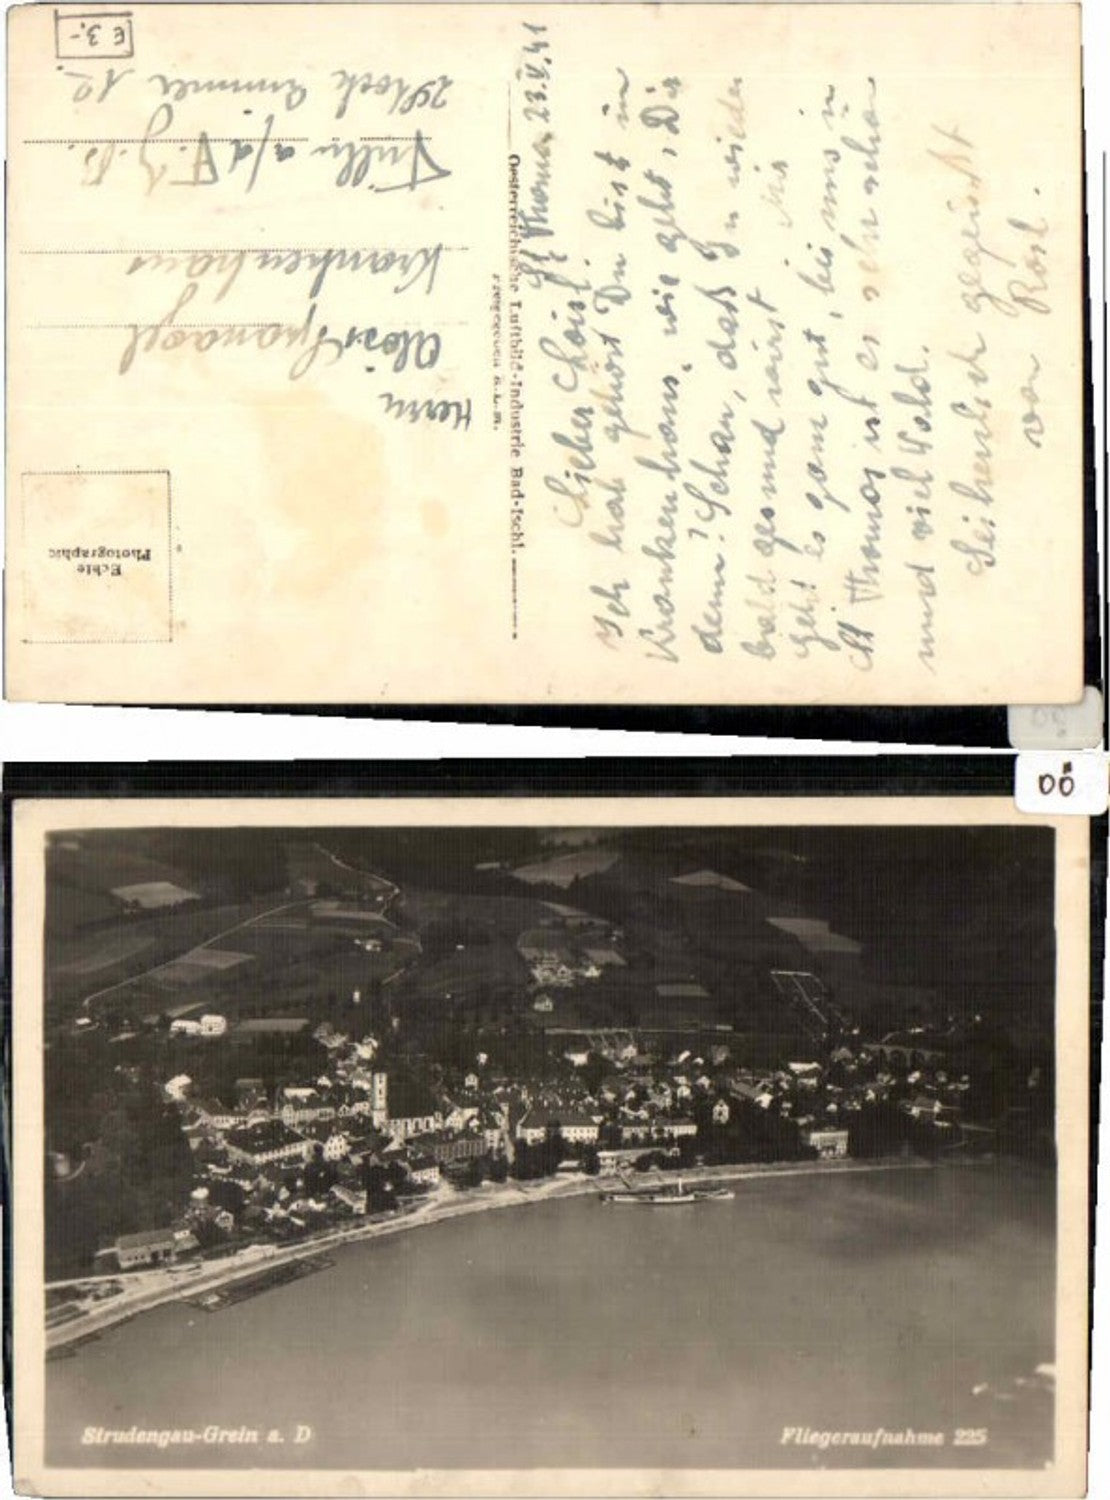 E 3.-
Herrn
Alois Spanagl
Krankenhaus
Tulln a/d
2. Stock Zimmer 12.
Echte
Photographie
Oesterreichische Luftbild-Industrie Bad-Ischl.
St Thomas 23.V.41
Lieber Loisl!
Ich hab gehört Du bist im
Krankenhaus, wie geht, Dir
denn? Schau, daß Du wieder
bald gesund wirst Mir
geht es ganz gut, bei uns in
St Thomas ist es sehr schön
und viel Wald.
Sei herzlich gegrüßt
von Rosl.
OÖ
OÖ
Strudengau-Grein a. D
Fliegeraufnahme 225